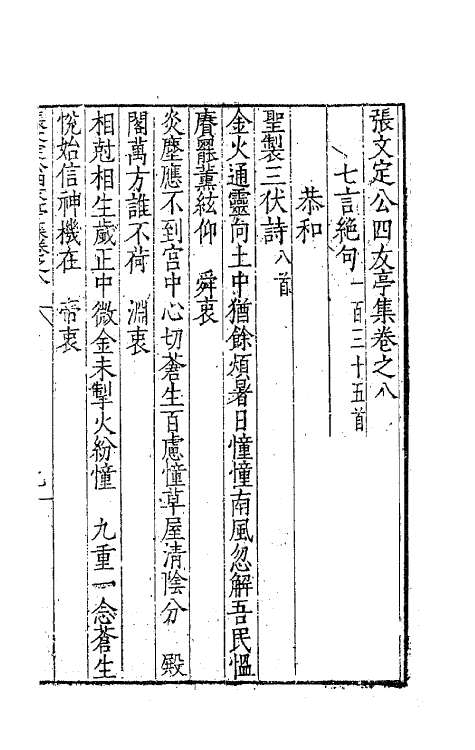 張文定公四友亭集卷之八
七言絕句一百三十五首
恭和
聖製三伏詩八首
金火通靈向土中猶餘煩暑日憧憧南風忽解吾民慍
賡罷薰絃仰 舜衷
炎塵應不到宮中心切蒼生百慮憧草屋清陰分 殿
閣萬方誰不荷 淵衷
相尅相生歲正中微金未掣火紛憧 九重一念蒼生
悅始信神機在 帝衷